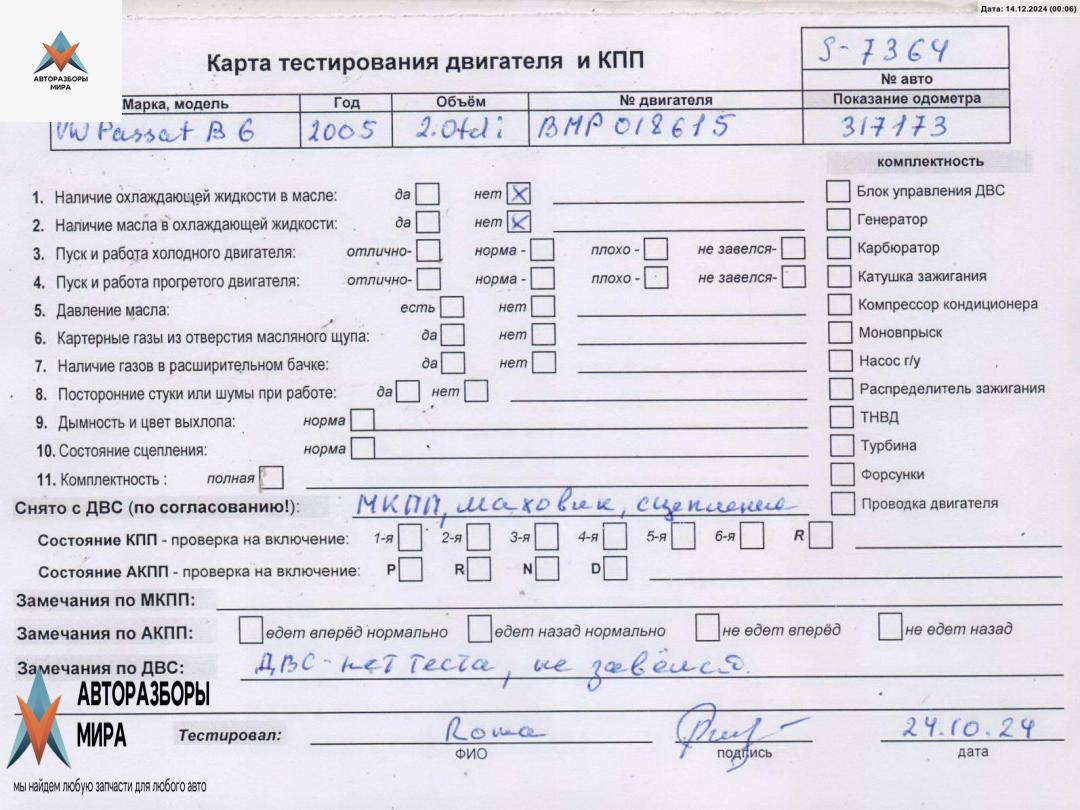 Дата: 14.12.2024 (00:06)
АВТОРАЗБОРЫ
МИРА
Карта тестирования двигателя и КПП
S-7364
№ авто
Марка, модель Год Объём № двигателя Показание одометра
VW Passat B 6 2005 2.0tdi BMP 018615 317173
комплектность
1. Наличие охлаждающей жидкости в масле: да нет X
Блок управления ДВС
2. Наличие масла в охлаждающей жидкости: да нет X
Генератор
3. Пуск и работа холодного двигателя: отлично- норма - плохо - не завелся-
Карбюратор
4. Пуск и работа прогретого двигателя: отлично- норма - плохо - не завелся-
Катушка зажигания
5. Давление масла: есть нет
Компрессор кондиционера
6. Картерные газы из отверстия масляного щупа: да нет
Моновпрыск
7. Наличие газов в расширительном бачке: да нет
Насос г/у
8. Посторонние стуки или шумы при работе: да нет
Распределитель зажигания
9. Дымность и цвет выхлопа: норма
ТНВД
10. Состояние сцепления: норма
Турбина
11. Комплектность : полная
Форсунки
Снято с ДВС (по согласованию!): МКПП, маховик, сцепление
Проводка двигателя
Состояние КПП - проверка на включение: 1-я 2-я 3-я 4-я 5-я 6-я R
Состояние АКПП - проверка на включение: P R N D
Замечания по МКПП:
Замечания по АКПП: едет вперёд нормально едет назад нормально не едет вперёд не едет назад
Замечания по ДВС: ДВС - нет теста, не завёлся.
АВТОРАЗБОРЫ
МИРА
мы найдем любую запчасти для любого авто
Тестировал: Roma 24.10.24
ФИО подпись дата